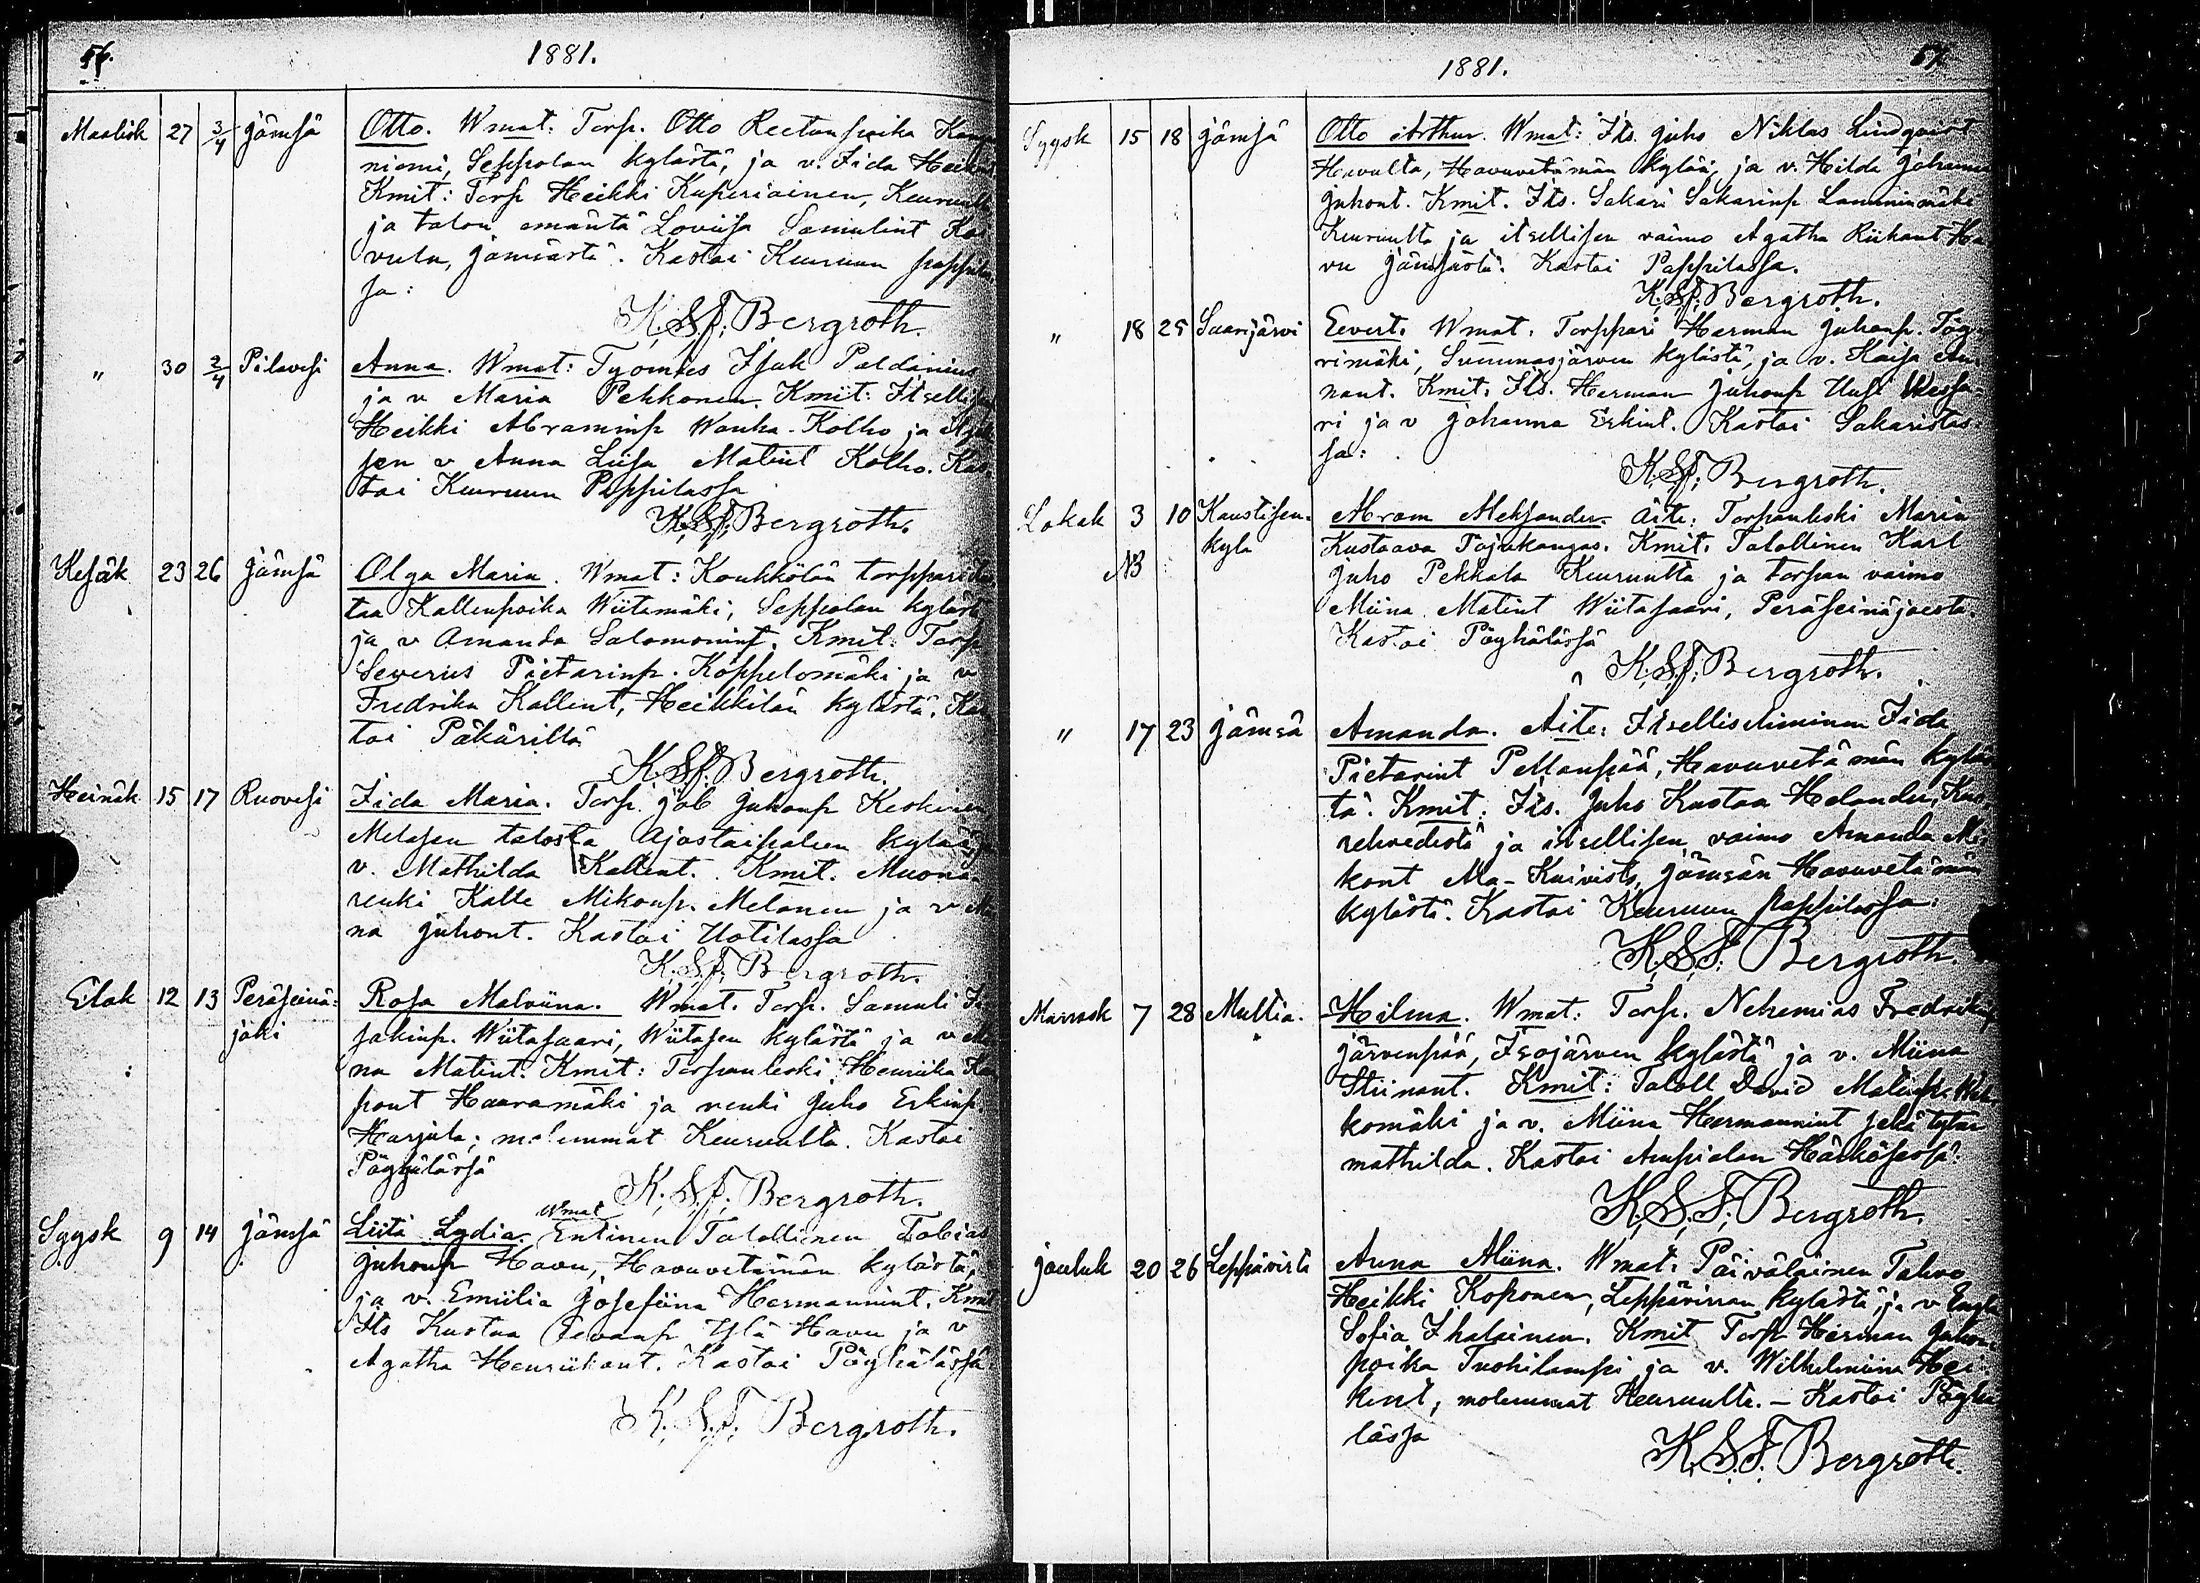 56.
1881.
Maalisk 27 3/4 Jämsä Otto. Wmat: Torp. Otto Reetanpoika
niemi, Seppolan kylästä, ja v. Iida
Kmit: Torp Heikki Kuperiainen,
ja talon emäntä Loviisa Samulint
vulu, Jämsästä. Kastoi Keuruun
sa:
K. S. F. Bergroth.
" 30 2/4 Pilavesi Anna. Wmat: Työmies Isak Paldanius
ja v Maria Pekkonen. Kmit:
Heikki Abraminp Wanha-Kolho ja
sen v Anna Liisa Matint Kolho. Kas-
toi Keuruun Pappilassa
K. S. F. Bergroth.
Kesäk 23 26 Jämsä Olga Maria. Wmat: Koukkölän
taa Kallenpoika Wiitamäki, Seppolan
ja v Amanda Salomonint. Kmit: Torp
Severus Pietarinp. Koppelomäki ja v
Fredrika Kallent, Heikkilän kylästä.
toi Päkärillä
K. S. F. Bergroth.
Heinäk 15 17 Ruovesi Iida Maria. Torp. Jak Juhonp Keskinen
Melasen talosta Ajostaipaleen
v. Mathilda Kallent. Kmit. Muona-
renki Kalle Mikonp. Melonen ja v
na Juhont. Kastoi Uotilassa
K. S. F. Bergroth.
Elok 12 13 Peräseinä- Rosa Malviina. Wmat. Torp. Samuli
joki sakinp. Wiitasaari, Wiitasen kylästä ja v
na Matint. Kmit: Torpanleski Henriika
pont Haaramäki ja renki Juho Erkinp.
Harjula; molemmat Keuruulta. Kastoi
Pöyhölässä
K. S. F. Bergroth.
Wmat
Syysk 9 14 Jämsä Liitä Lydia. Entinen Talollinen Tobias
Juhonp Havu, Havuvetämän kylästä,
ja v. Emiilia Josefiina Hermannint. Kmit
Its Kustaa Eevanp Ylä Havu ja v
Agatha Henriikant. Kastoi Pöyhölässä
K. S. F. Bergroth.
1881.
57.
Syysk 15 18 Jämsä Otto Arthur. Wmat: Its. Juho Niklas Lindqvist
Havulta, Havuvetämän kylää, ja v. Hilda
Juhont. Kmit. Its. Sakari Sakarinp. Lamminmäki
Keuruulta ja itsellisen vaimo Agatha Riikant Ha-
vu Jämsästä. Kastoi Pappilassa.
K. S. F. Bergroth.
" 18 25 Saarijärvi Eevert. Wmat. Torppari Herman Juhonp.
rimäki, Summasjärven kylästä, ja v. Kaisa
nant. Kmit. Its. Herman Juhonp Uusi Wessa-
ri ja v Johanna Erkint. Kastoi Sakaristas-
sa:
K. S. F. Bergroth.
Lokak 3 10 Kaustisen- Abram Aleksander. Äite: Torpanleski Maria
kylä Kustaava Tojakangas. Kmit. Talollinen Karl
NB Juho Pekkala Keuruulta ja torpan vaimo
Miina Matint Wiitasaari, Peräseinäjoesta
Kastoi Pöyhölässä
K. S. F. Bergroth.
" 17 23 Jämsä Amanda. Äite: Itsellisnaiminen Iida
Pietarint Pellonpää, Havuvetämän kyläs-
tä. Kmit: Its. Juho Kustaa Helander,
rehvedestä ja itsellisen vaimo Amanda Mi-
kont Ala-Kuivisto, Jämsän Havuvetämän
kylästä. Kastoi Keuruun pappilassa:
K. S. F. Bergroth.
Marrask 7 28 Multia. Hilma. Wmat: Torp. Nehemias Fredrikinp
Järvenpää, Isojärven kylästä ja v. Miina
Stiinant. Kmit: Taloll David Matinp.
komäki ja v. Miina Hermannint sekä tytär
mathilda. Kastoi Ampialan Härkösessä:
K. S. F. Bergroth.
Jouluk 20 26 Leppävirta Anna Miina. Wmat: Päiväläinen Tahvo
Heikki Koponen, Leppävirran kylästä, ja v
Sofia Ihalainen. Kmit Torp Herman Juhon-
poika Tuohilampi ja v. Wilhelmiina Hei-
kint, molemmat Keuruulta. – Kastoi Pöyhö-
lässä
K. S. F. Bergroth.